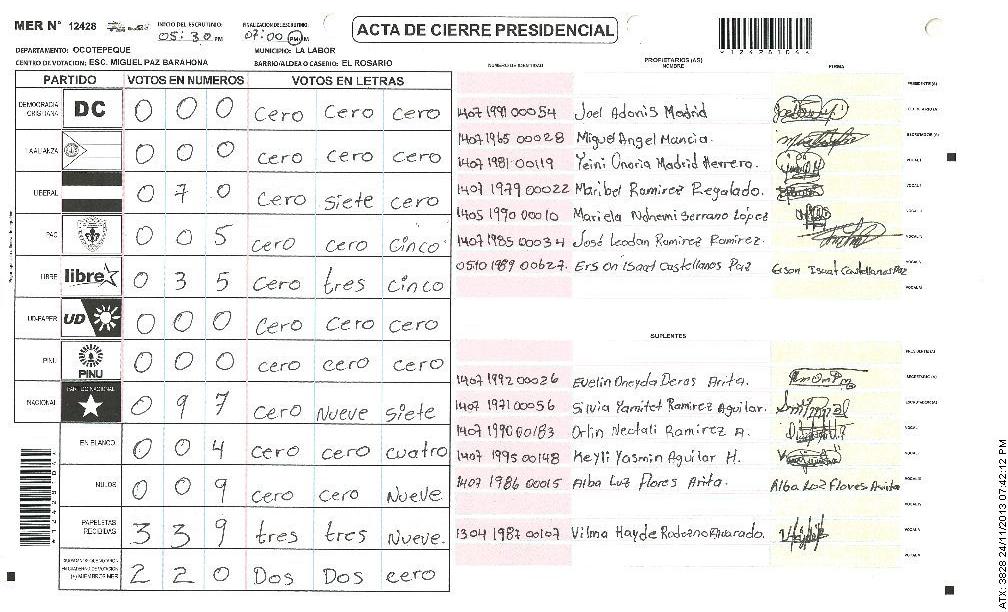 MER N° 12428 INICIO DEL ESCRUTINIO: 05:30 PM FINALIZACION DEL ESCRUTINIO: 07:00 PM
ACTA DE CIERRE PRESIDENCIAL
DEPARTAMENTO: OCOTEPEQUE MUNICIPIO: LA LABOR
CENTRO DE VOTACION: ESC. MIGUEL PAZ BARAHONA BARRIO/ALDEA O CASERIO: EL ROSARIO
PARTIDO VOTOS EN NUMEROS VOTOS EN LETRAS
DEMOCRACIA CRISTIANA DC 0 0 0 Cero Cero Cero
AALIANZA 0 0 0 Cero Cero Cero
LIBERAL 0 7 0 Cero Siete Cero
PAC 0 0 5 Cero Cero Cinco
LIBRE libre 0 3 5 Cero tres Cinco
UD-FAPER UD 0 0 0 Cero Cero Cero
PINU PINU 0 0 0 Cero Cero Cero
NACIONAL PARTIDO NACIONAL 0 9 7 Cero Nueve Siete
EN BLANCO 0 0 4 Cero Cero Cuatro
NULOS 0 0 9 Cero Cero Nueve
PAPELETAS RECIBIDAS 3 3 9 tres tres Nueve.
MIEMBROS MER 2 2 0 Dos Dos Cero
NUMERO DE IDENTIDAD PROPIETARIOS (AS) NOMBRE FIRMA
PRESIDENTE(A)
1407 1991 00054 Joel Adonis Madrid
1407 1965 00028 Miguel Angel Mancia.
1407 1981 00119 Yeini Onoria Madrid Herrero.
1407 1979 00022 Maribel Ramirez Regalado.
1405 1990 00010 Mariela Nohemi Serrano López
1407 1985 00034 José Leodan Ramirez Ramirez.
0510 1989 00627. Erson Isaat Castellanos Paz Erson Isaat Castellanos Paz
SUPLENTES
PRESIDENTE(A)
1407 1992 00026 Evelin Oneyda Deras Arita. SECRETARIO (A)
1407 1971 00056 Silvia Yamitet Ramirez Aguilar.
1407 1990 00183 Orlin Neotali Ramirez A.
1407 1995 00148 Keyli Yasmin Aguilar H.
1407 1986 00015 Alba Luz Flores Arita. Alba Luz Flores Arita
1304 1987 00107 Vilma Hayde Rodezno Alvarado.
ATX: 3828 24/11/2013 07:42:12 PM